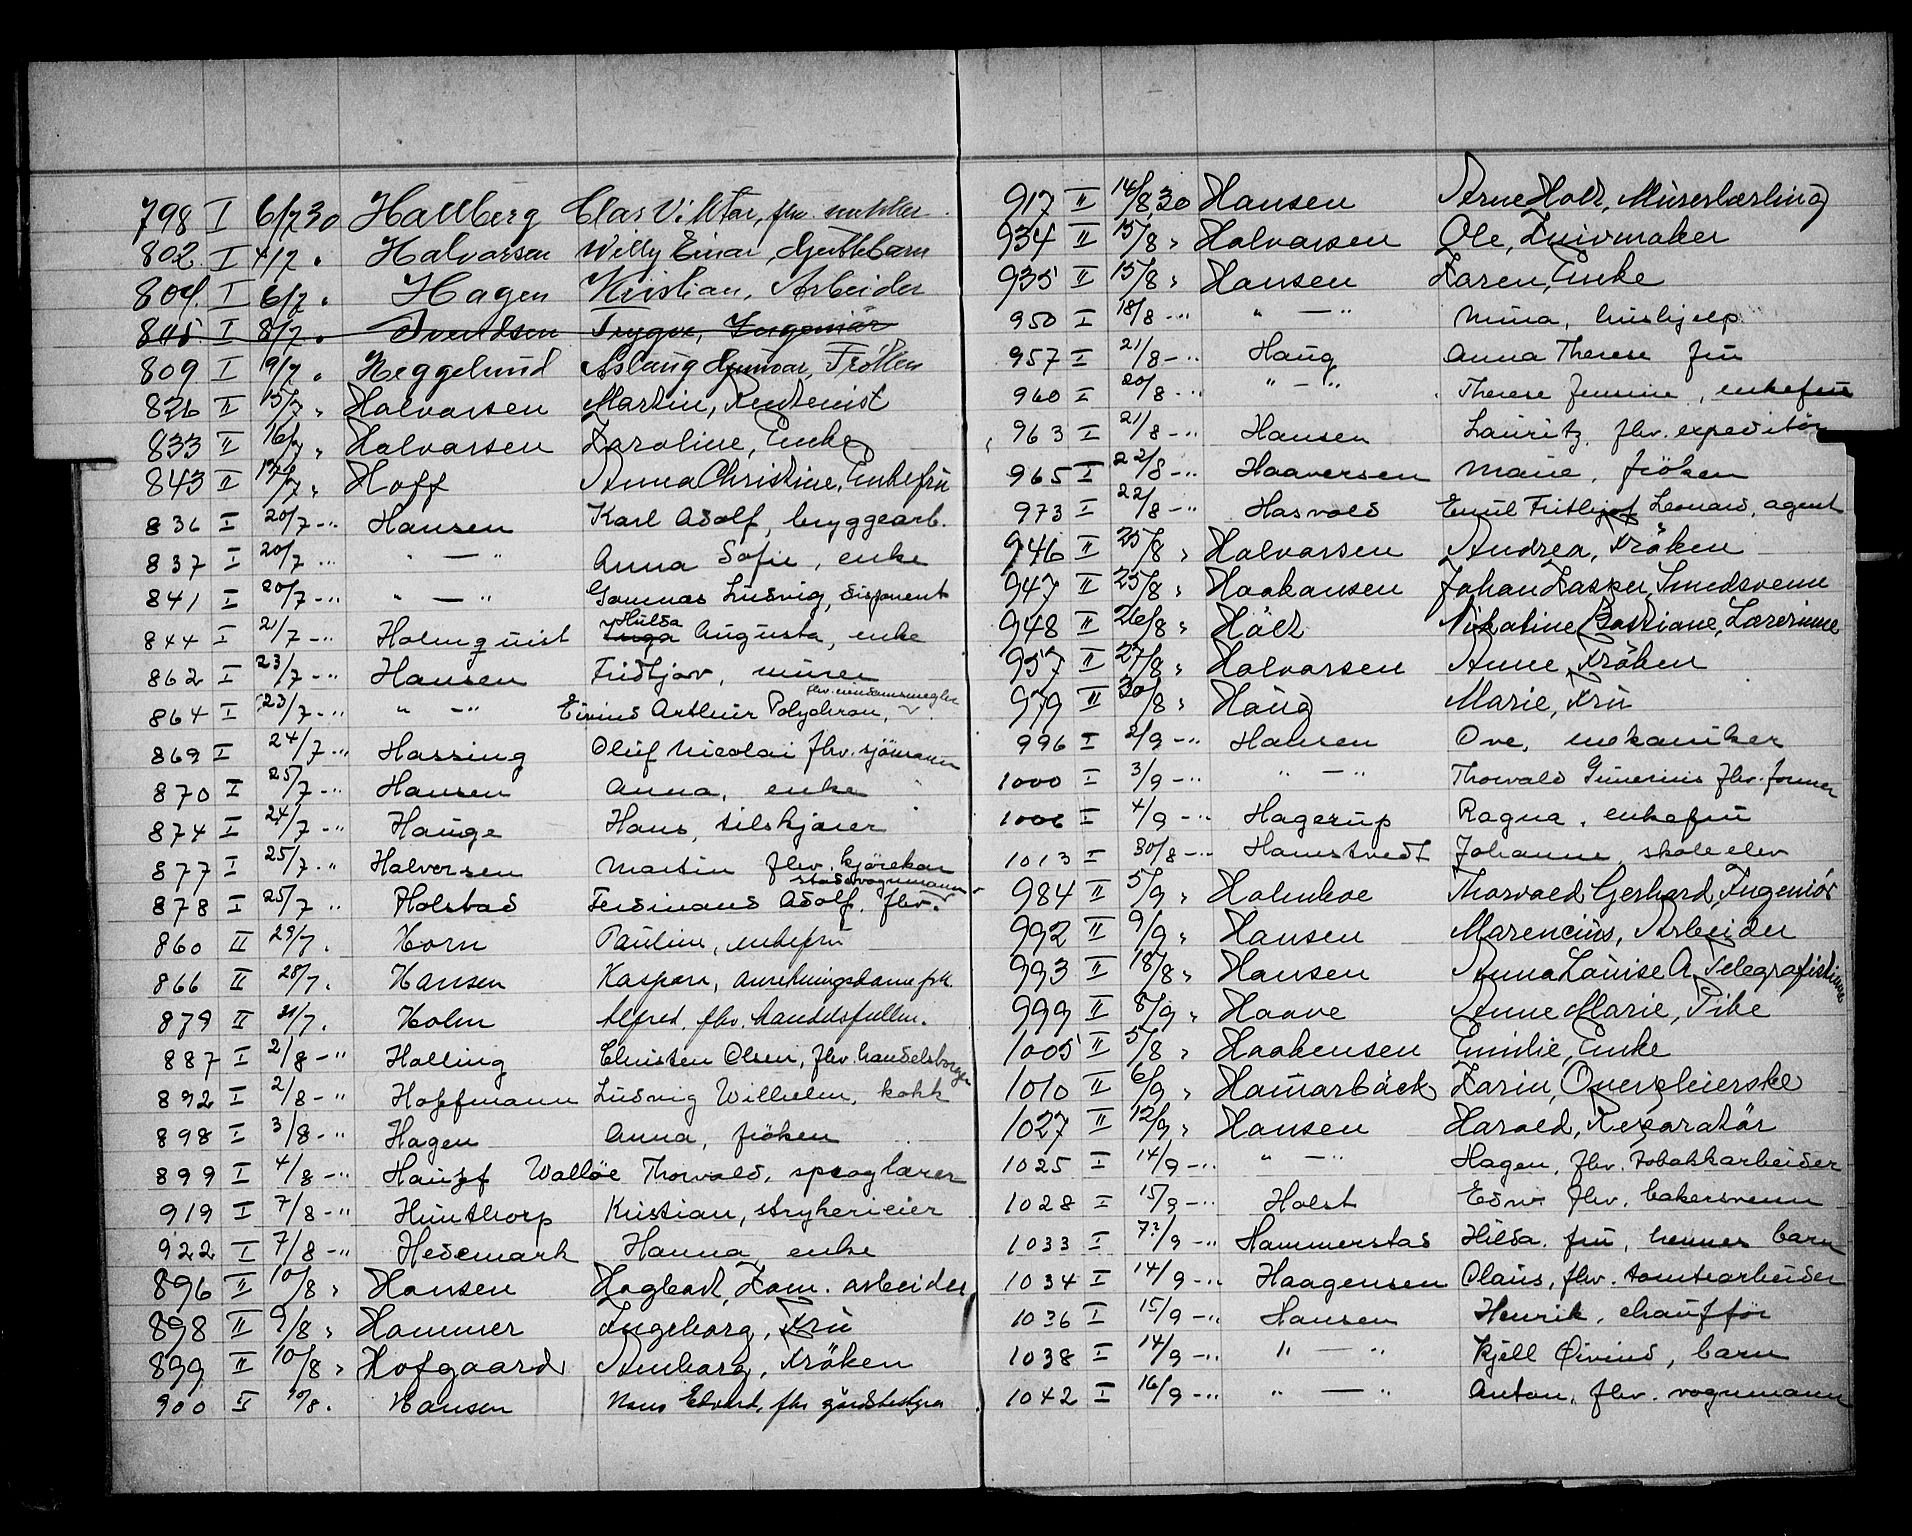 798 I 6/7 30 Hallberg Clas Viktor, fhv. snekker
802 I 4/7 " Halvorsen Willy Einar, guttebarn
804 I 6/7 " Hagen Kristian, Arbeider
805 I 8/7 " Svendsen Trygve, Ingeniör
809 I 9/7 " Heggelund Aslaug Gunvor, Fröken
826 II 15/7 " Halvorsen Martin, Rentenist
833 II 16/7 " Halvorsen Karoline, Enke
843 II 17/7 " Hoff Anna Christine, Enkefru
836 I 20/7 -"- Hansen Karl Adolf, bryggearb.
837 I 20/7 -"- " — " Anna Sofie, enke
841 I 20/7 -"- " — " Ludvig, disponent
844 I 21/7 -"- Holmquist Hulda
Inga Augusta, enke
862 I 23/7 -"- Hansen Fridtjov, murer
864 I 23/7 -"- " -" Eivind Arthur Polychron, fhv. eiendomsmegler
869 I 24/7 -"- Hassing Oluf Nicolai fhv. sjömann
870 I 25/7 -"- Hansen Anna, enke
874 I 24/7 -"- Hauge Hans, bilskjörer
877 I 25/7 -"- Halvorsen Martin fhv. kjörekar
878 I 25/7 " Holstad Ferdinand Adolf, fhv. stadsvognmann
860 II 29/7. Horn Pauline, enkefru
866 II 28/7. Hansen Kaspara, anretningsdame frk.
879 II 31/7. Holm Alfred, fhv. handelsfullm.
887 I 2/8 -"- Holling Christen Olsen, fhv. handelsborger
892 I 2/8 -"- Hoffmann Ludvig Wilhelm, kokk
898 I 3/8 -"- Hagen Anna, fröken
899 I 4/8 -"- Hauff Wallöe Thorvald, sproglærer
919 I 7/8 -"- Hunthorp Kristian, strykerieier
922 I 7/8 -"- Hedemark Hanna, enke
896 II 10/8 " Hansen Hagbart, Kom. arbeider
898 II 9/8 " Hammer Ingeborg, Fru
899 II 10/8 " Hofgaard Amborg, Fröken
900 II 10/8. Hansen Hans Edvard, fhv gårdbestyrer
917 II 14/8 30 Hansen Arne Holt, Murerlærling
934 II 15/8 " Halvorsen Ole, Kurvmaker
935 II 15/8 " Hansen Karen, Enke
950 I 18/8 -"- " — " Mina, hushjelp
957 I 21/8 -"- Haug Anna Therese fru
960 I 20/8 -"- " — " Therese Jensine, enkefru
963 I 21/8 -"- Hansen Lauritz, fhv. expeditör
965 I 22/8 -"- Haaversen Marie, fröken
973 I 22/8 -"- Hasvold Emil Frithjof Leonard, agent
946 II 25/8 " Halvorsen Andrea, Fröken
947 II 25/8 " Haakansen Johan Kasper, Smedsvenn
948 II 26/8 " Holt Nikoline Bastiane, Lærerinne
957 II 27/8 " Halvorsen Anne, Fröken
979 II 30/8 " Haug Marie, Fru
996 I 2/9 -"- Hansen Ove, mekaniker
1000 I 3/9 -"- " — " Thorvald Gunerius fhv. former
1006 I 4/9 -"- Hagerup Ragna, enkefru
1013 I 30/8 -"- Hamstvedt Johanne, skoleelev
984 II 5/9 " Holmboe Thorvald Gerhard, Ingeniör
992 II 9/9 " Hansen Marencius, Arbeider
993 II 18/8 " Hansen Anna Louise A. Telegrafistinne
999 II 8/9 " Haave Anne Marie, Pike
1005 II 5/8 " Haakensen Emilie, Enke
1010 II 6/9 " Hamarbäck Karin, Overpleierske
1027 II 12/9 " Hansen Harald, Reparatör
1025 I 14/9 -"- " — " Hagen, fhv. tobakkarbeider
1028 I 15/9 -"- Holst Edw. fhv. bakersvenn
1033 I 7?/9 -"- Hammerstad Hilda, fru, hennes barn
1034 I 14/9 -"- Haagensen Claus, fhv. tomtearbeider
1036 I 15/9 -"- Hansen Henrik, chauffør
1038 I 14/9 -"- " — " Kjell Øivind, barn
1042 I 16/9 -"- " — " Anton, fhv. vognmann